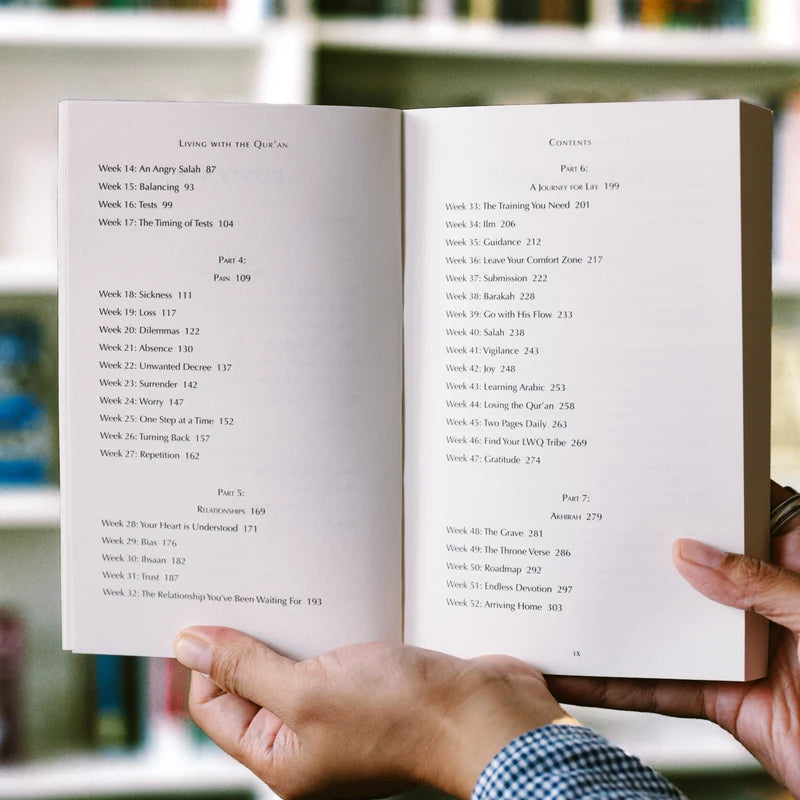 Living with the Qur'an
Week 14: An Angry Salah 87
Week 15: Balancing 93
Week 16: Tests 99
Week 17: The Timing of Tests 104
Part 4:
Pain 109
Week 18: Sickness 111
Week 19: Loss 117
Week 20: Dilemmas 122
Week 21: Absence 130
Week 22: Unwanted Decree 137
Week 23: Surrender 142
Week 24: Worry 147
Week 25: One Step at a Time 152
Week 26: Turning Back 157
Week 27: Repetition 162
Part 5:
Relationships 169
Week 28: Your Heart is Understood 171
Week 29: Bias 176
Week 30: Ihsaan 182
Week 31: Trust 187
Week 32: The Relationship You've Been Waiting For 193
Contents
Part 6:
A Journey for Life 199
Week 33: The Training You Need 201
Week 34: Ilm 206
Week 35: Guidance 212
Week 36: Leave Your Comfort Zone 217
Week 37: Submission 222
Week 38: Barakah 228
Week 39: Go with His Flow 233
Week 40: Salah 238
Week 41: Vigilance 243
Week 42: Joy 248
Week 43: Learning Arabic 253
Week 44: Losing the Qur'an 258
Week 45: Two Pages Daily 263
Week 46: Find Your LWQ Tribe 269
Week 47: Gratitude 274
Part 7:
Akhirah 279
Week 48: The Grave 281
Week 49: The Throne Verse 286
Week 50: Roadmap 292
Week 51: Endless Devotion 297
Week 52: Arriving Home 303
ix